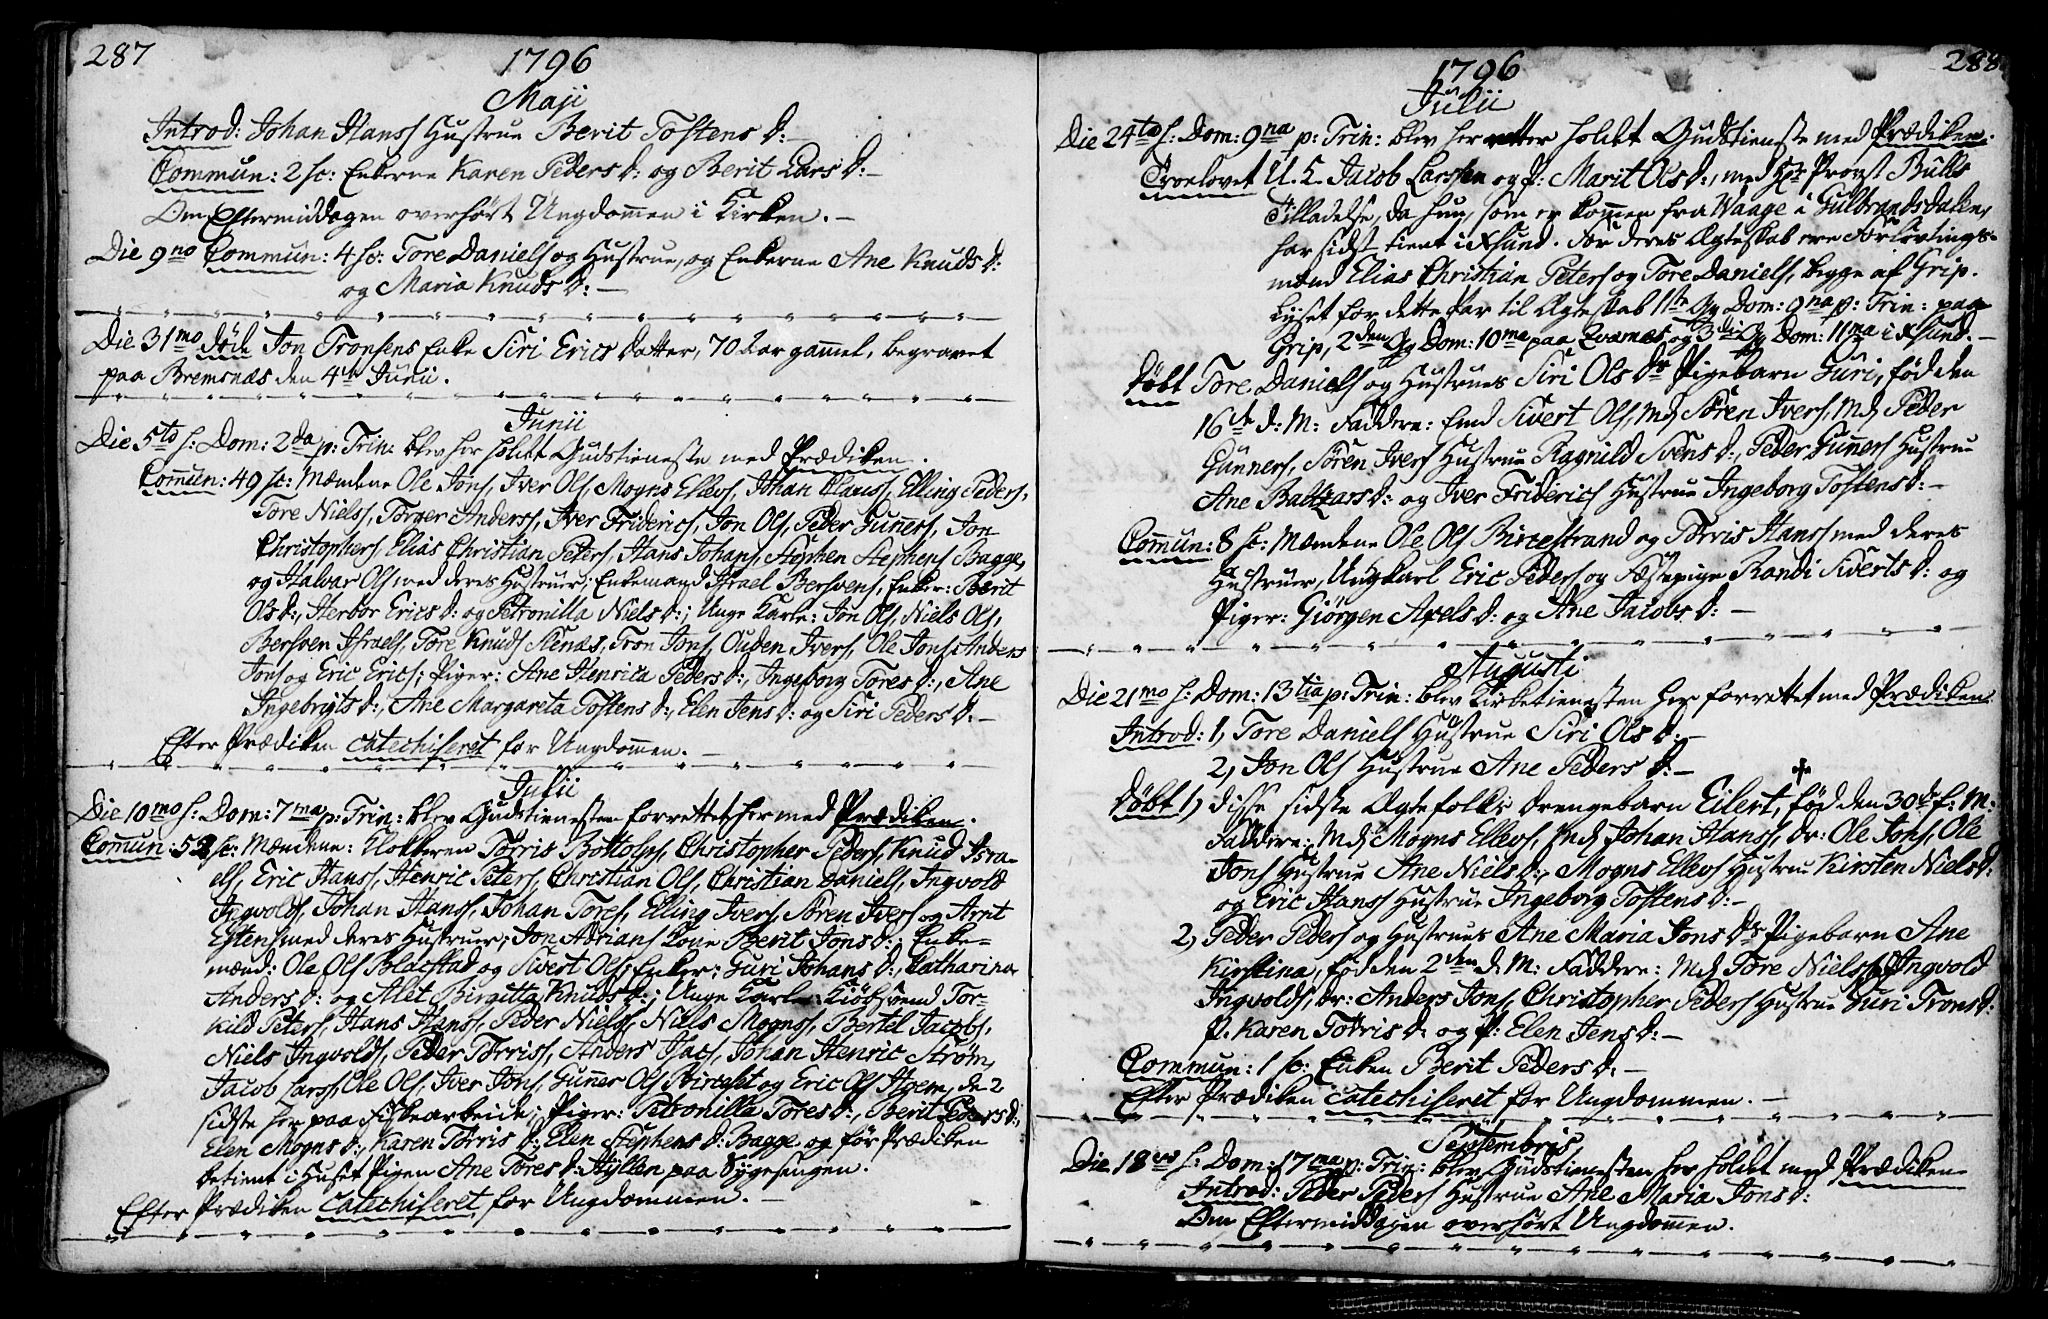 287
1796
Maji
Introd: Johan Hanss Hustrue Berit Tostens D:
Commun: 2 sc: Enkerne Karen Peders D: og Berit Lars D:
Om Eftermiddagen overhørt Ungdommen i Kirken.
Die 9no Commun: 4 sc: Tore Daniels og Hustrue, og Enkerne Ane Knuds D:
og Maria Knuds D:
Die 31mo døde Jon Tronsens Enke Siri Erics datter, 70 Aar gammel, begravet
paa Bremsnæs den 4de Junii.
Junii
Die 5td s: Dom: 2da p: Trin: blev her holdt Gudstieneste med Prædiken.
Commun: 49 sc: Mændene Ole Jons, Iver Ols, Mogns Ellevs, Johan Clauss, Elling Peders,
Tore Nielss, Torger Anderss, Iver Friderics, Jon Ols, Peder Guners, Jon
Christophers, Elias Christian Peters, Hans Johans, Stephen Stephens Bagge,
og Halvar Ols med deres Hustruer; Enkemand Israel Bersvens, Enker: Berit
Ols D:, Herbor Erics D: og Petronilla Niels D:; Unge Karle: Jon Ols, Niels Ols,
Bersven Israels, Tore Knuds Stenæs, Tron Jons, Ouden Ivers, Ole Jons, Anders
Jons og Eric Erics; Piger: Ane Henrica Peders D:, Ingeborg Tores D:, Ane
Ingebrigts D:, Ane Margareta Tostens D:, Elen Jens D: og Siri Peders D:
Efter Prædiken catechiseret for Ungdommen.
Julii
Die 10mo s: Dom: 7ma p: Trin: blev Gudstienesten forrettet her med Prædiken.
Comun: 52 sc: Mændene: Klokkeren Tørris Bottolps, Christopher Peders, Knud Isra-
els, Eric Hanss, Henric Peters, Christian Ols, Christian Daniels, Ingvold
Ingvolds, Johan Hanss, Johan Tores, Elling Ivers, Søren Ivers og Arnt
Estens med deres Hustruer; Jon Adrians Kone Berit Jons D:; Enke-
mænd: Ole Ols Bladstad og Sivert Ols; Enker: Guri Johans D:, Catharina
Anders D: og Alet Birgitta Knuds D:; Unge Karle: Kiøbsvend Tor-
kild Peters, Hans Hanss, Peder Nielss, Niels Mognss, Bertel Jacobs,
Niels Ingvolds, Peder Tørriss, Anders Isacs, Johan Henric Strøm,
Jacob Larss, Ole Ols, Iver Jons, Gunner Ols og Eric Ols, de 2
sidste her paa Fiskearbeide; Piger: Petronilla Tores D:, Berit Peders D:,
Elen Mogns D:, Karen Tørris D:, Elen Stephens D: Bagge og før Prædiken
betient i Huset Pigen Ane Tores D: Hyllen paa Sygesengen.
Efter Prædiken catechiseret for Ungdommen.
288
1796
Julii
Die 24td s: Dom: 9na p: Trin: blev her holdt Gudstieneste med Prædiken.
Troelovet U. K. Jacob Larssen og P: Marit Ols D:, med Hr: Provst Bulls
Tilladelse, da hun, som er kommen fra Waage i Gulbrandsdalen,
har sidst tient i Xsund. For deres Ægteskab ere Forlovings-
mænd Elias Christian Peters og Tore Daniels, begge af Grip.
Lyset for dette Par til Ægteskab 1ste G: Dom: 9na p: Trin: paa
Grip, 2den G: Dom: 10ma paa Qvarnæs, og 3die G: Dom: 11ma i Xsund.
Døbt Tore Daniels og Hustrues Siri Ols Ds Pigebarn Guri, fød den
16de d: M: Faddere: Emd Sivert Ols, Md Søren Ivers, Md Peder
Gunners, Søren Ivers Hustrue Ragnild Svens D:, Peder Gunners Hustrue
Ane Baltzars D: og Iver Friderichs Hustrue Ingeborg Tostens D:
Commun: 8 sc: Mændene Ole Ols Birchestrand og Tørris Hanss med deres
Hustruer, Ungkarl Eric Peders og Fæstepige Randi Siverts D: og
Piger: Giørgen Axels D: og Ane Jacobs D:
Augusti
Die 21mo s: Dom: 13tia p: Trin: blev Kirketienesten her forrettet med Prædiken
Introd: 1, Tore Daniels Hustrue Siri Ols D:
2, Jon Ols Hustrue Ane Peders D:
Døbt 1, disse sidste Ægtefolks drengebarn Eilert, fød den 30de f: M:
Faddere: Md Mogns Ellevs, Md Johan Hanss, dr: Ole Jons, Ole
Jons Hustrue Ane Niels D:, Mogns Ellevs Hustrue Kirsten Niels D:
og Eric Hanss Hustrue Ingeborg Tostens D:
2, Peder Peders og Hustrues Ane Maria Jons Ds Pigebarn Ane
Kirstina, fød den 2den d: M: Faddere: Md Tore Nielss, Md Ingvold
Ingvolds, dr: Anders Jons, Christopher Peders Hustrue Guri Trons D:
P. Karen Tørris D: og P: Elen Jens D:
Commun: 1 sc: Enken Berit Peders D:
Efter Prædiken catechiseret for Ungdommen.
Septembris
Die 18vo s: Dom: 17ma p: Trin: blev Gudstienesten her holdt med Prædiken
Introd: Peder Peders Hustrue Ane Maria Jons D:
Om Eftermiddagen overhørt Ungdommen.